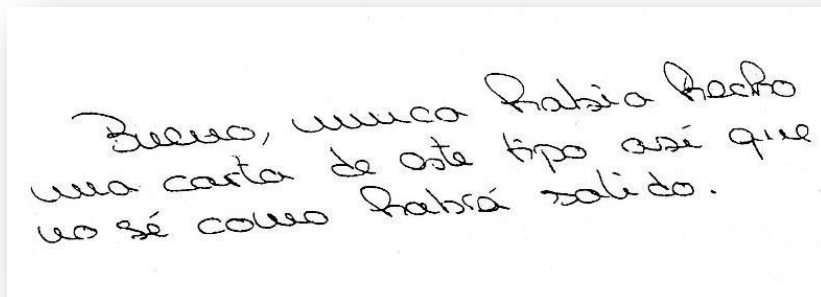 Bueno, nunca habia hecho
una carta de este tipo asi que
no sé como habrá salido.